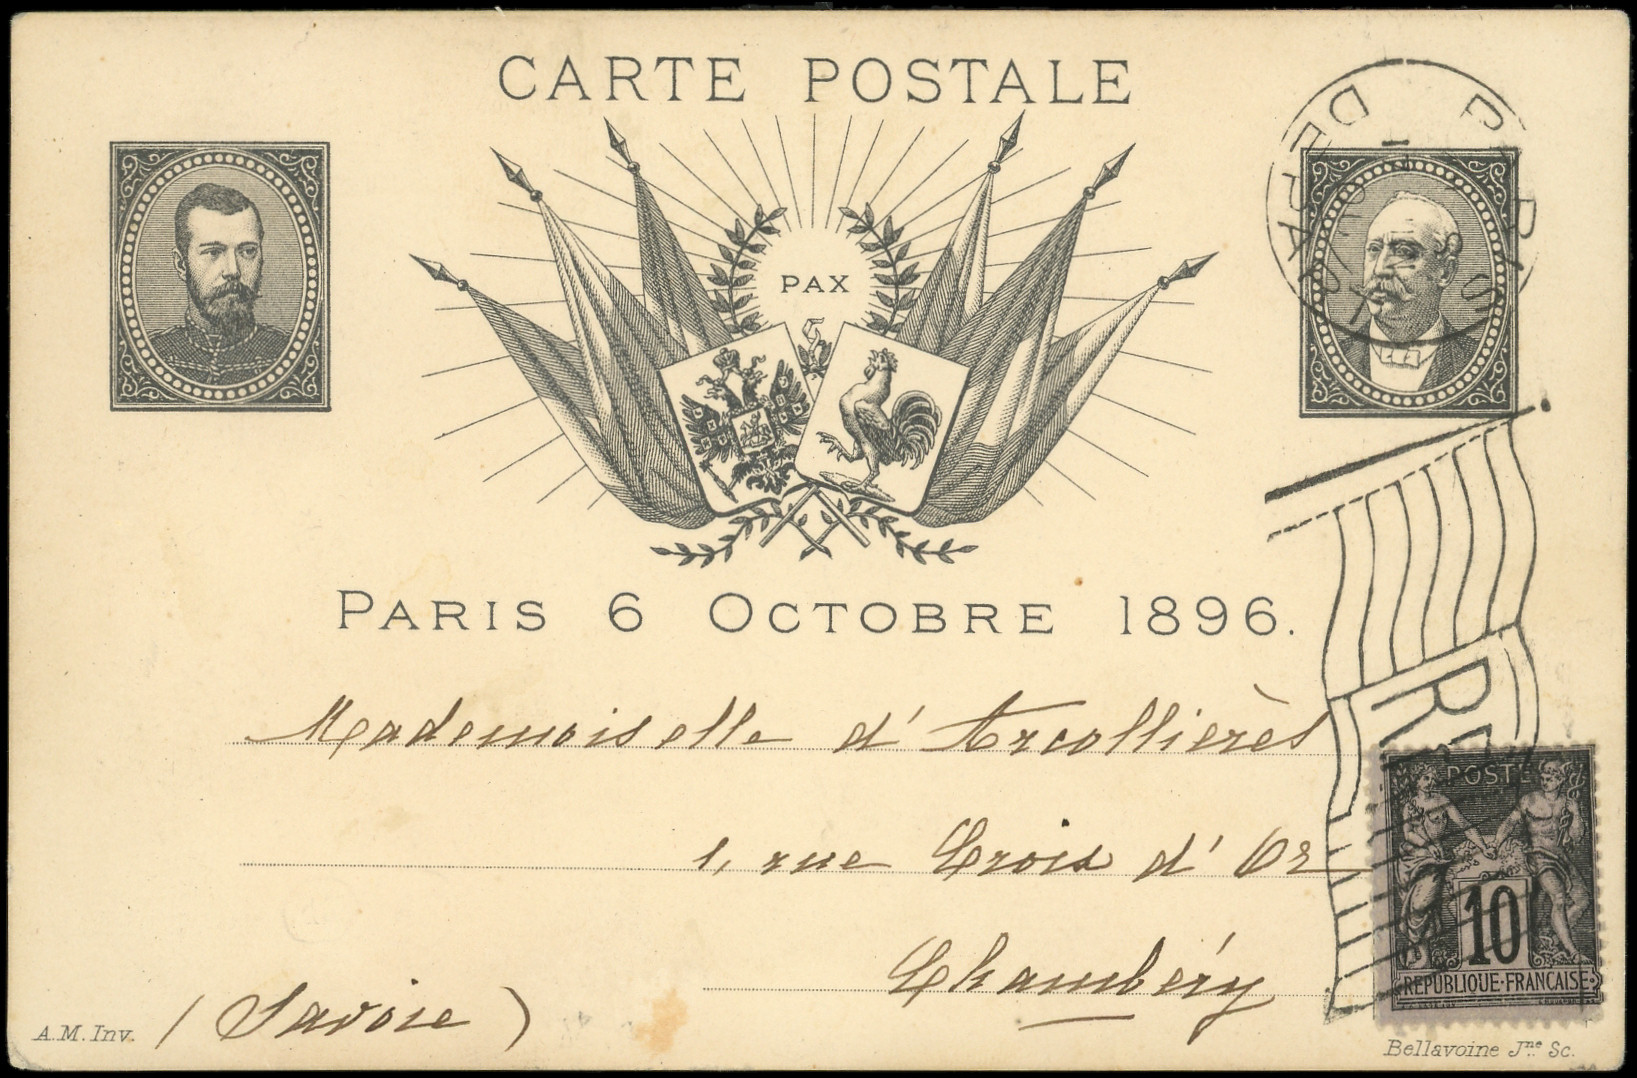 CARTE POSTALE
PAX
PARIS 6 OCTOBRE 1896.
Mademoiselle d'Arcollières
1, rue Croix d'Or
Chambéry
(Savoie)
POSTE
10
REPUBLIQUE·FRANCAISE
PARIS
DEPART
RF
A.M. Inv.
Bellavoine Jne Sc.